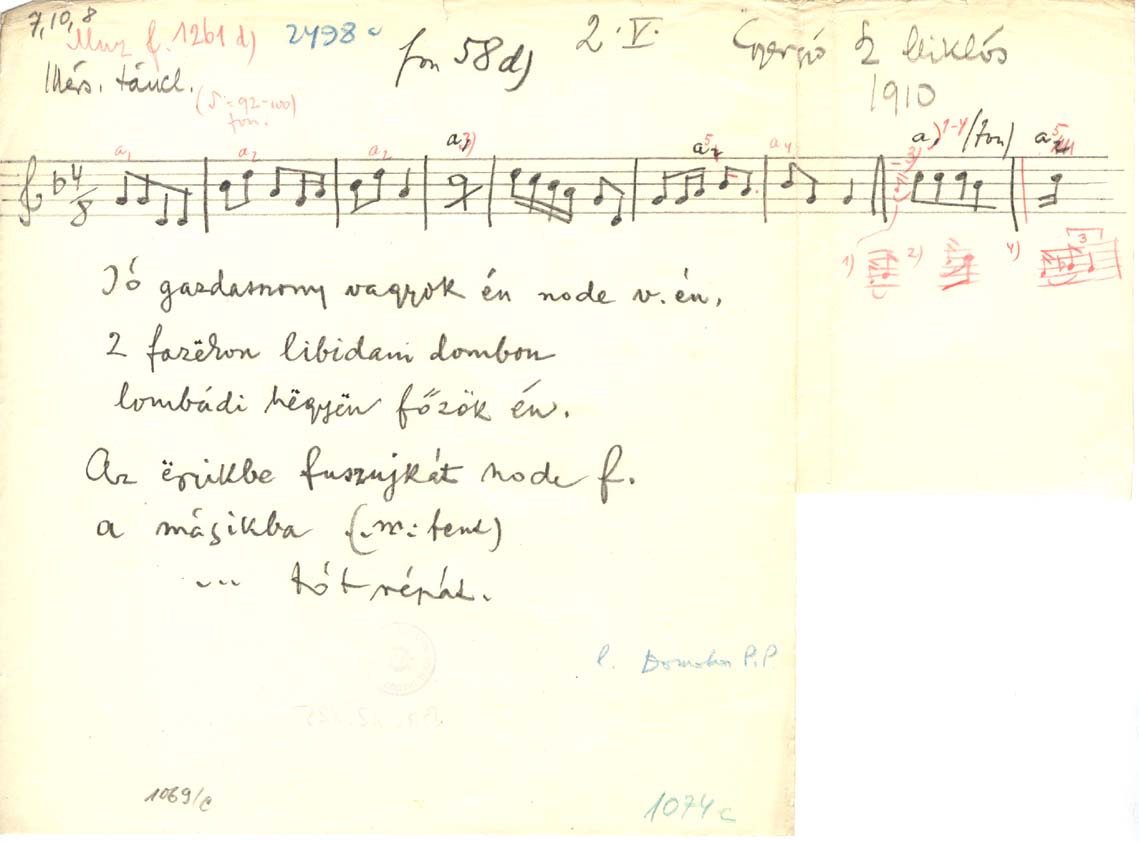 7, 10, 8
Muz f. 1261 d) 2498 c fon 58 d) 2. V. Gyergyó Sz Miklós
Mérs. táncl. 1910
(♪ = 92-100)
fon.
a1 a2 a2 a3) a5 a4 a) 1-4 (fon) a5
4/8
1) 2) 4) 3
Jó gazdasszony vagyok én node v. én,
2 fazëkon libidani dombon
lombádi hëgyën főzök én.
Az ëgyikbe fuszujkát node f.
a másikba (m: fent)
... tót répát.
l. Domokos P.P.
1069/c 1074 c